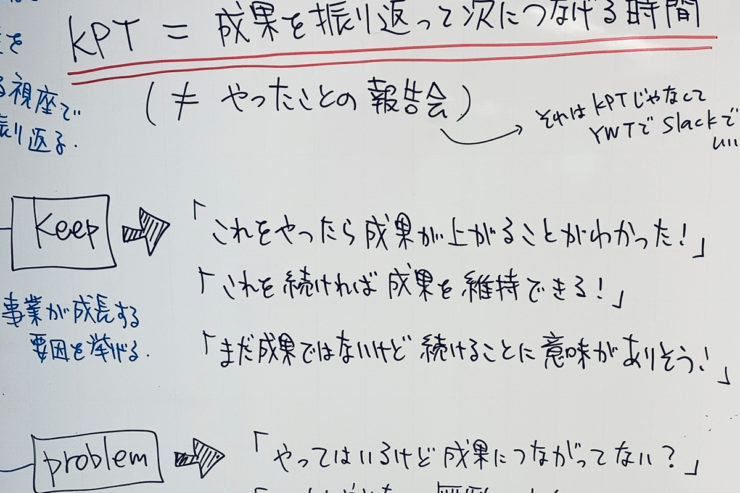 KPT = 成果を振り返って次につなげる時間
(≠ やったことの報告会)
それはKPTじゃなくて
YWTでSlackで
いい
を
る視座で
振り返る.
Keep
「これをやったら成果が上がることがわかった!」
「これを続ければ成果を維持できる!」
「まだ成果ではないけど続けることに意味がありそう!」
事業が成長する
要因を挙げる.
problem
「やってはいるけど成果につながってない?」